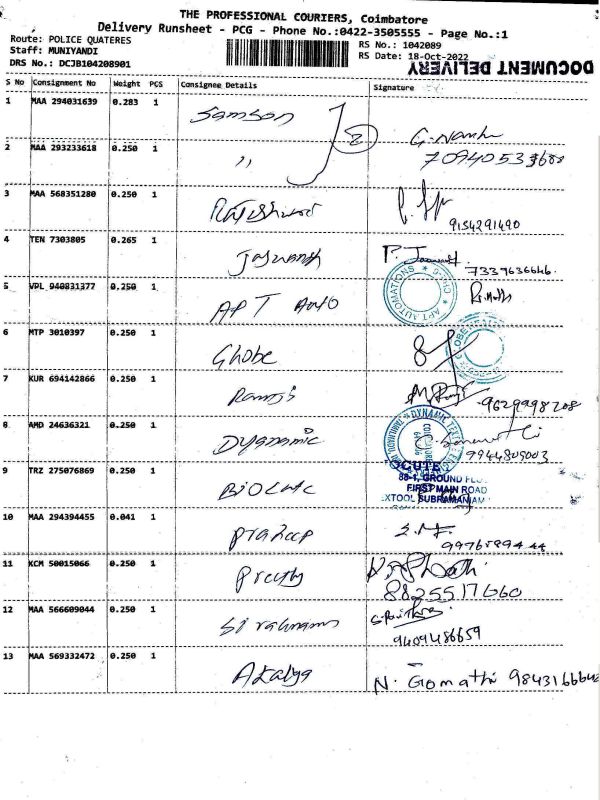 THE PROFESSIONAL COURIERS, Coimbatore
Delivery Runsheet - PCG - Phone No.:0422-3505555 - Page No.:1
Route: POLICE QUATERES
Staff: MUNIYANDI
DRS No.: DCJB104208901
RS No.: 1042089
RS Date: 18-Oct-2022
DOCUMENT DELIVERY
S No Consignment No Weight PCS Consignee Details Signature
1 MAA 294031639 0.283 1 Samson 2
2 MAA 293233618 0.250 1 ,,
3 MAA 568351280 0.250 1 9154291490
4 TEN 7303805 0.265 1 Jaswanth 7339636646
5 VPL 940831377 0.250 1 APT Auto
APT AUTOMATIONS
6 MTP 3010397 0.250 1 Globe
7 KUR 694142866 0.250 1 Ramji 9629998208
8 AMD 24636321 0.250 1 Dyanamic 9944805003
9 TRZ 275076869 0.250 1
88-1, GROUND FL
FIRST MAIN ROAD
SUBRAMANIAM
10 MAA 294394455 0.041 1 Pradeep
11 KCM 50015066 0.250 1 Preethy 8825517660
12 MAA 566609044 0.250 1 9409486659
13 MAA 569332472 0.250 1 Akalya N. Gomathi